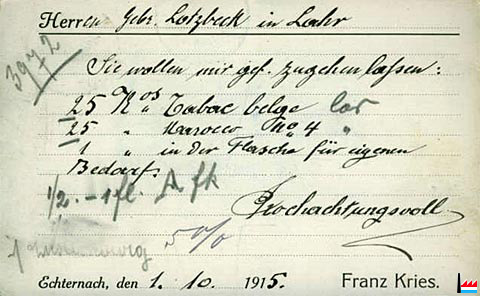 Herren Gebr. Lotzbeck in Lahr
3972
Sie wollen mir gef. zugehen lassen:
25 Kos Tabac belge
25 " Marocco No 4 "
1 " in der Flasche für eigenen
Bedarf.
1/2 - 1 fl.
Hochachtungsvoll
5%
Echternach, den 1. 10. 1915. Franz Kries.